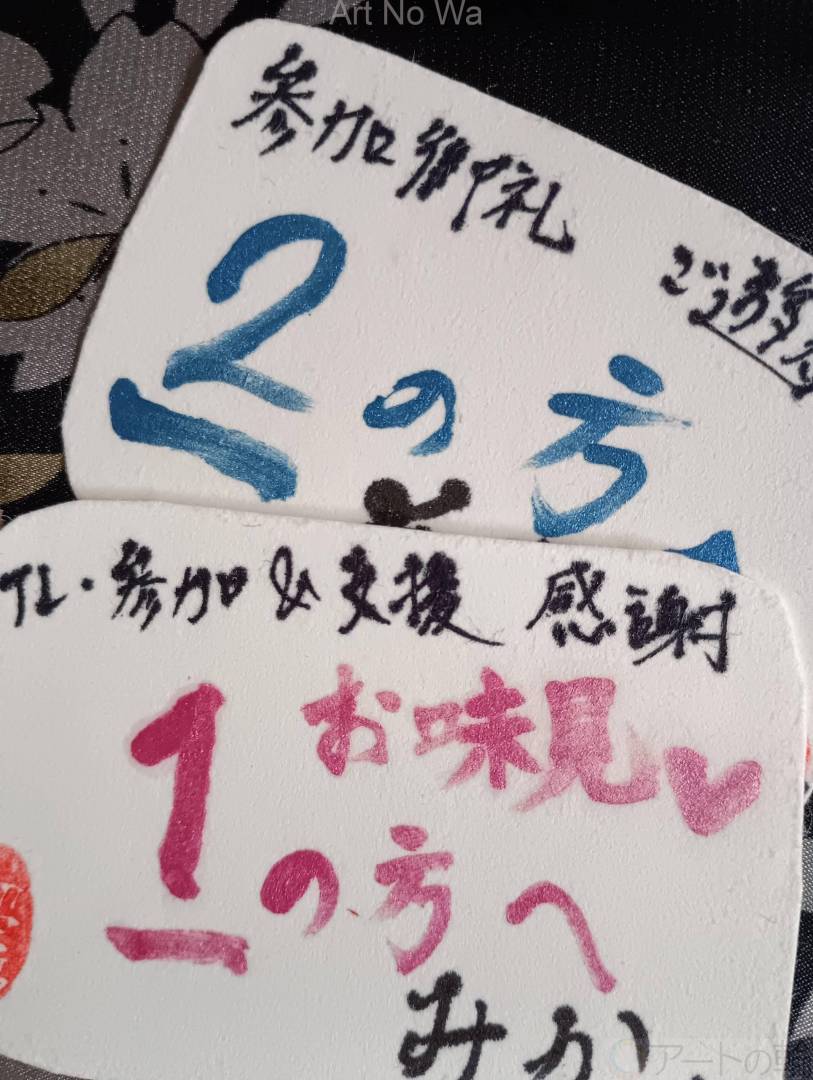 Art No Wa
参加御礼
ご参
2の方
TL・参加&支援 感謝
お味見♥
1の方へ
みか
アートの